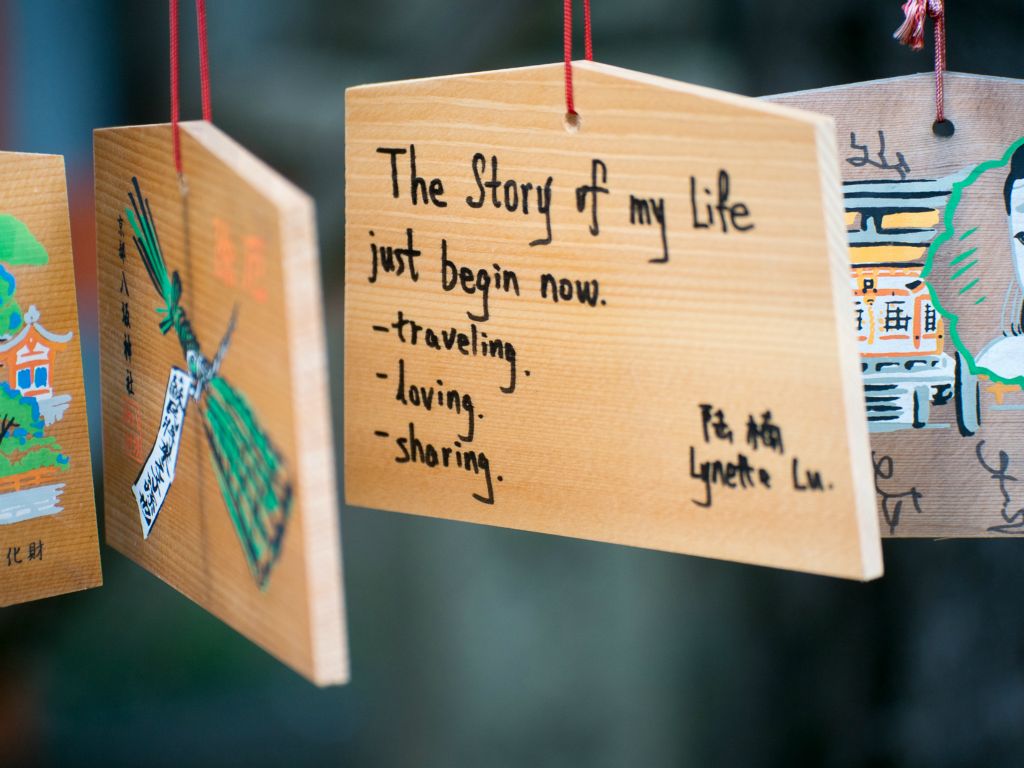 化財
京都八坂神社
除厄
The Story of my Life
just begin now.
-traveling.
-loving.
-sharing.
陆楠
Lynette Lu.